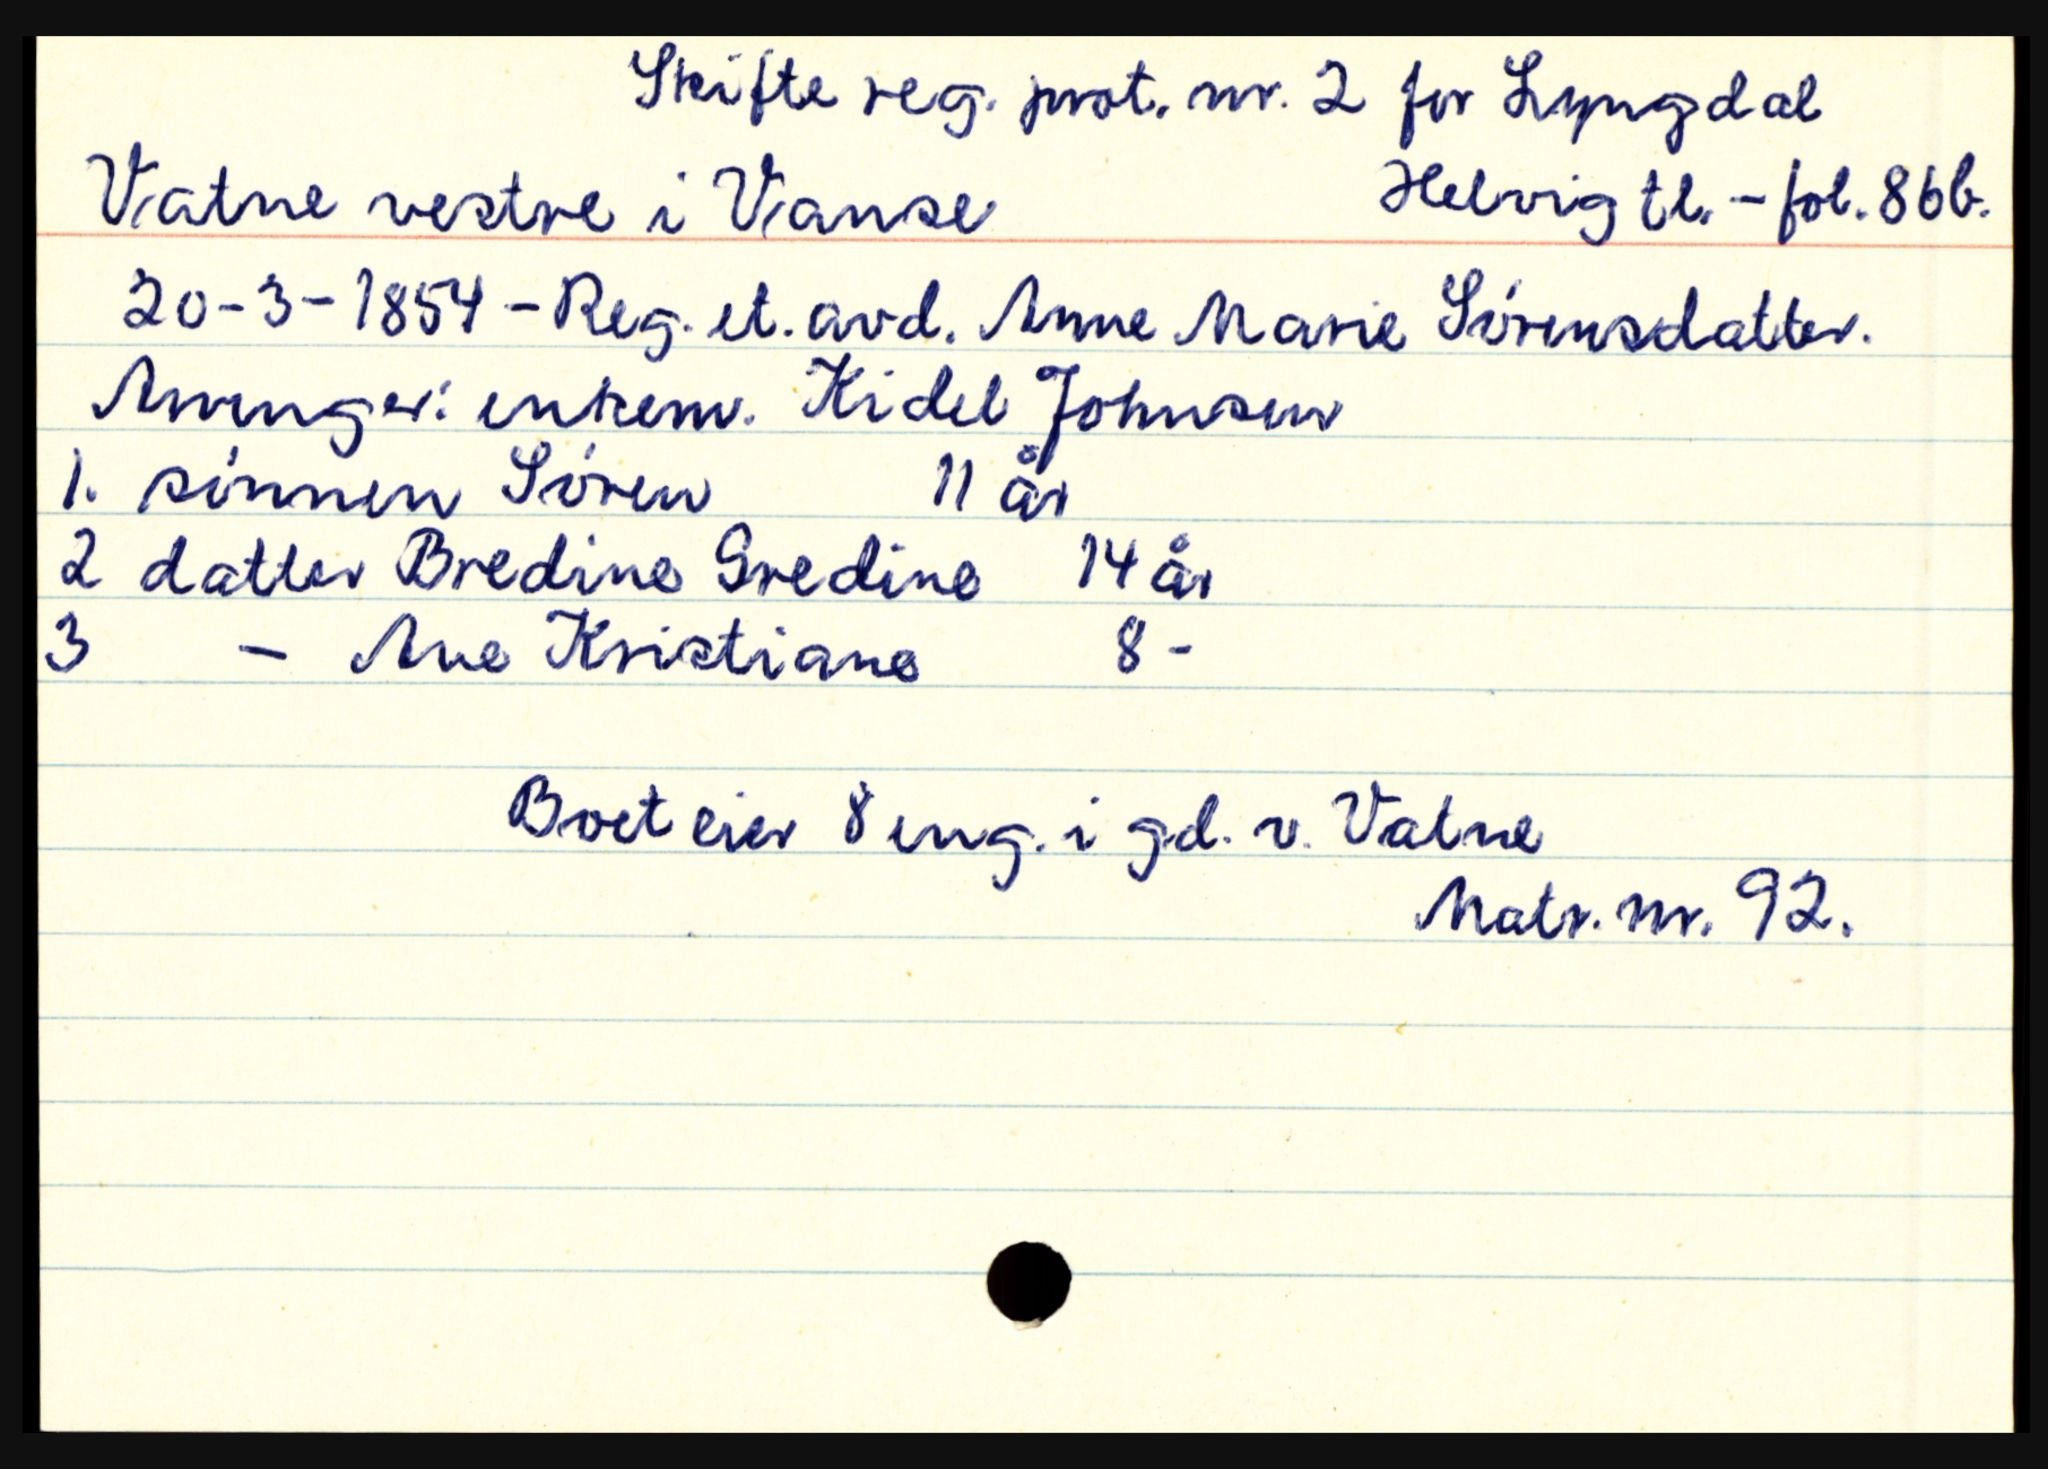 Skifte reg. prot. nr. 2 for Lyngdal
Vatne vestre i Vanse Helvig tl. - fol. 86b.
20-3-1854 - Reg. et. avd. Anne Marie Sørensdatter.
Arvinger: enkem. Kidel Johnsen
1. sønnen Søren 11 år
2 datter Bredine Gredine 14 år
3 - Ane Kristiane 8 -
Boet eier 8 eng. i gd. v. Vatne
Matr. nr. 92.